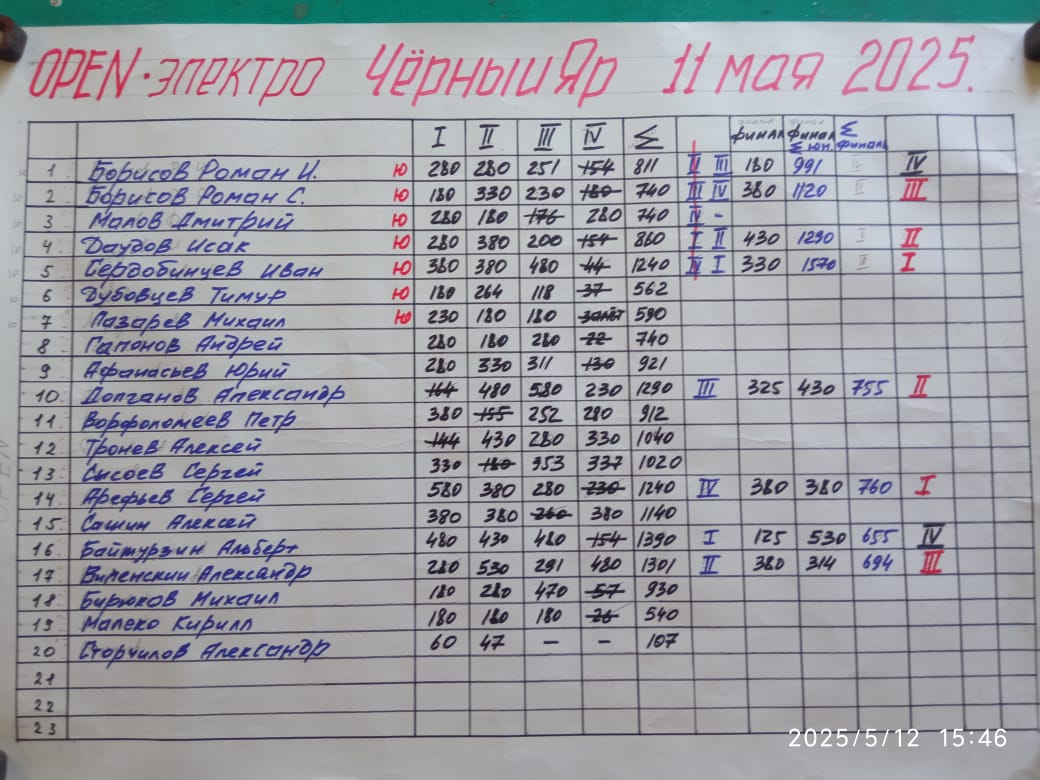 OPEN · электро Чёрный Яр 11 мая 2025.
I II III IV Σ финал финал Σ юн. Σ финалы
1 Борисов Роман И. Ю 280 280 251 154 811 II III 180 991 IV
2 Борисов Роман С. Ю 180 330 230 180 740 III IV 380 1120 III
3 Малов Дмитрий Ю 280 180 176 280 740 IV -
4 Даудов Исак Ю 280 380 200 154 860 I II 430 1290 II
5 Сердобинцев Иван Ю 380 380 480 44 1240 I 330 1570 I
6 Дубовцев Тимур Ю 180 264 118 37 562
7 Лазарев Михаил Ю 230 180 180 залёт 590
8 Гапонов Андрей 280 180 280 22 740
9 Афанасьев Юрий 280 330 311 130 921
10. Долганов Александр 164 480 580 230 1290 III 325 430 755 II
11 Ворфоломеев Петр 380 155 252 280 912
12 Тронев Алексей 144 430 280 330 1040
13. Сысоев Сергей 330 180 353 337 1020
14 Арефьев Сергей 580 380 280 230 1240 IV 380 380 760 I
15. Сашин Алексей 380 380 260 380 1140
16 Байтурзин Альберт 480 430 480 154 1390 I 125 530 655 IV
17 Виленский Александр 280 530 291 480 1301 II 380 314 694 III
18. Бирюков Михаил 180 280 470 57 930
19. Малеко Кирилл 180 180 180 26 540
20 Сторчилов Александр 60 47 – – 107
21
22
23
2025/5/12 15:46